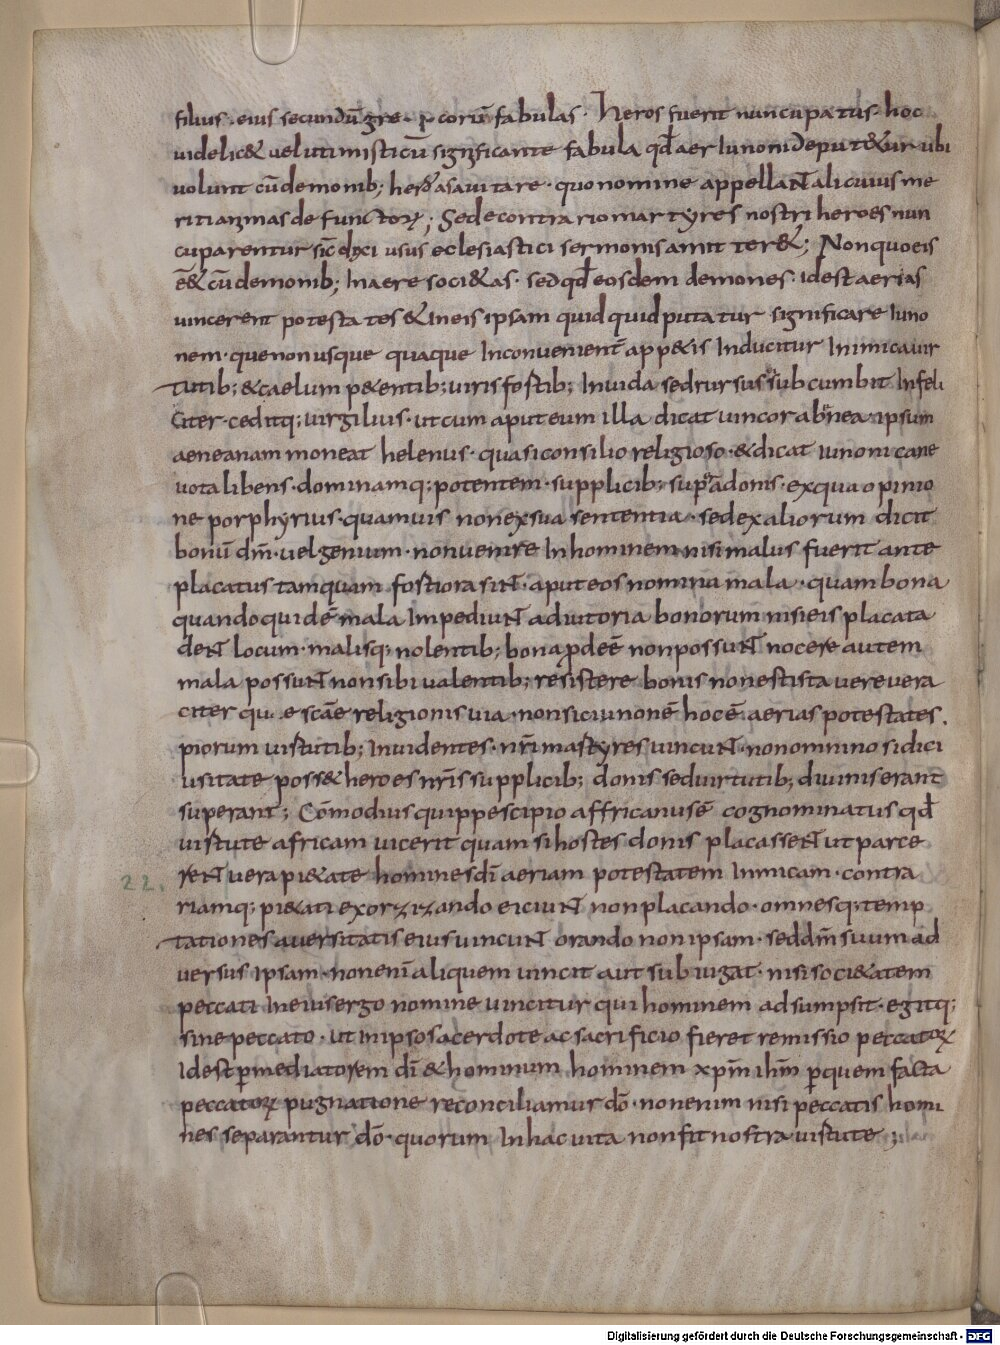 filius · eius secundū gre corū fabulas · Heros fuerit nuncupatus · hoc
uidelic& uelut misticū significante fabula qđ aer Iunoni deput&ur ubi
uolunt cū demonib; heroas auitare · quo nomine appellaNt alicuius me
riti animas defunctoꝝ; Sed e contrario martyres nostri heroes nun
cuparentur sic dixi usus eclesiastici sermonis amitter&; Non quo eis
ē& cū demonib; In aere soci&as · sed qđ eosdem demones · id est aerias
uincerent potestates & In eis ipsam quidquid putatur significare Iuno
nem · que non usque quaque Inconuenienť a po&is Inducitur Inimica uir
tutib; & caelum p&entib; uiris fortib; Inuida sed rursus sub cumbit Infeli
citer · ceditq; uirgilius · ut cum aput eum illa dicat uincor ab enea · ipsum
aeneanam moneat helenus · quasi consilio religioso · & dicat iunoni cane
uota libens · dominamq; potentem · supplicib; supera donis · ex qua opinio
ne porphyrius · quamuis non ex sua sententia · sed ex aliorum dicit
bonū dm̄ · uel genium · non uenire In hominem nisi malus fuerit ante
placatus tamquam fortiora siNt · aput eos nomina mala · quam bona
quandoquidē mala ImpediuNt adiutoria bonorum nisi eis placata
deNt locum · malisq; nolentib; bona ꝓdeē non possuNt nocere autem
mala possuNt non sibi ualentib; resistere bonis non est ista uere uera
citer qu e scāe religionis uia · non sic iunonē hoc ē aerias potestates ·
piorum uirtutib; Inuidentes · nr̄i martyres uincuNt · non omnino si dici
usitate poss& heroes nr̄is supplicib; donis sed uirtutib; diuinis erant
superant; Cōmodius quippe scipio affricanus ē cognominatus qđ
uirtute africam uicerit quam si hostes donis placasseNt ut parce
reNt uera pi&ate homines dī aeriam potestatem Inimicam · contra
riamq; pi&ati exorzizando eiciuNt non placando · omnesq; temp
tationes auersitatis eius uincuNt orando non ipsam · sed dm̄ suum ad
uersus ipsam · non enī aliquem uincit aut sub iugat · nisi soci&atem
peccati In eius ergo nomine uincitur qui hominem adsumpsit · egitq;
sine peccato · ut In ipso sacerdote ac sacrificio fieret remissio peccatoꝝ
Id est ꝑ mediatorem dī & hominum hominem xpm̄ ihm̄ ꝑ quem facta
peccatoꝝ pugnatione reconciliamur dō · non enim nisi peccatis homi
nes separantur dō · quorum In hac uita non fit nostra uirtute ;
22.
Digitalisierung gefördert durch die Deutsche Forschungsgemeinschaft - DFG